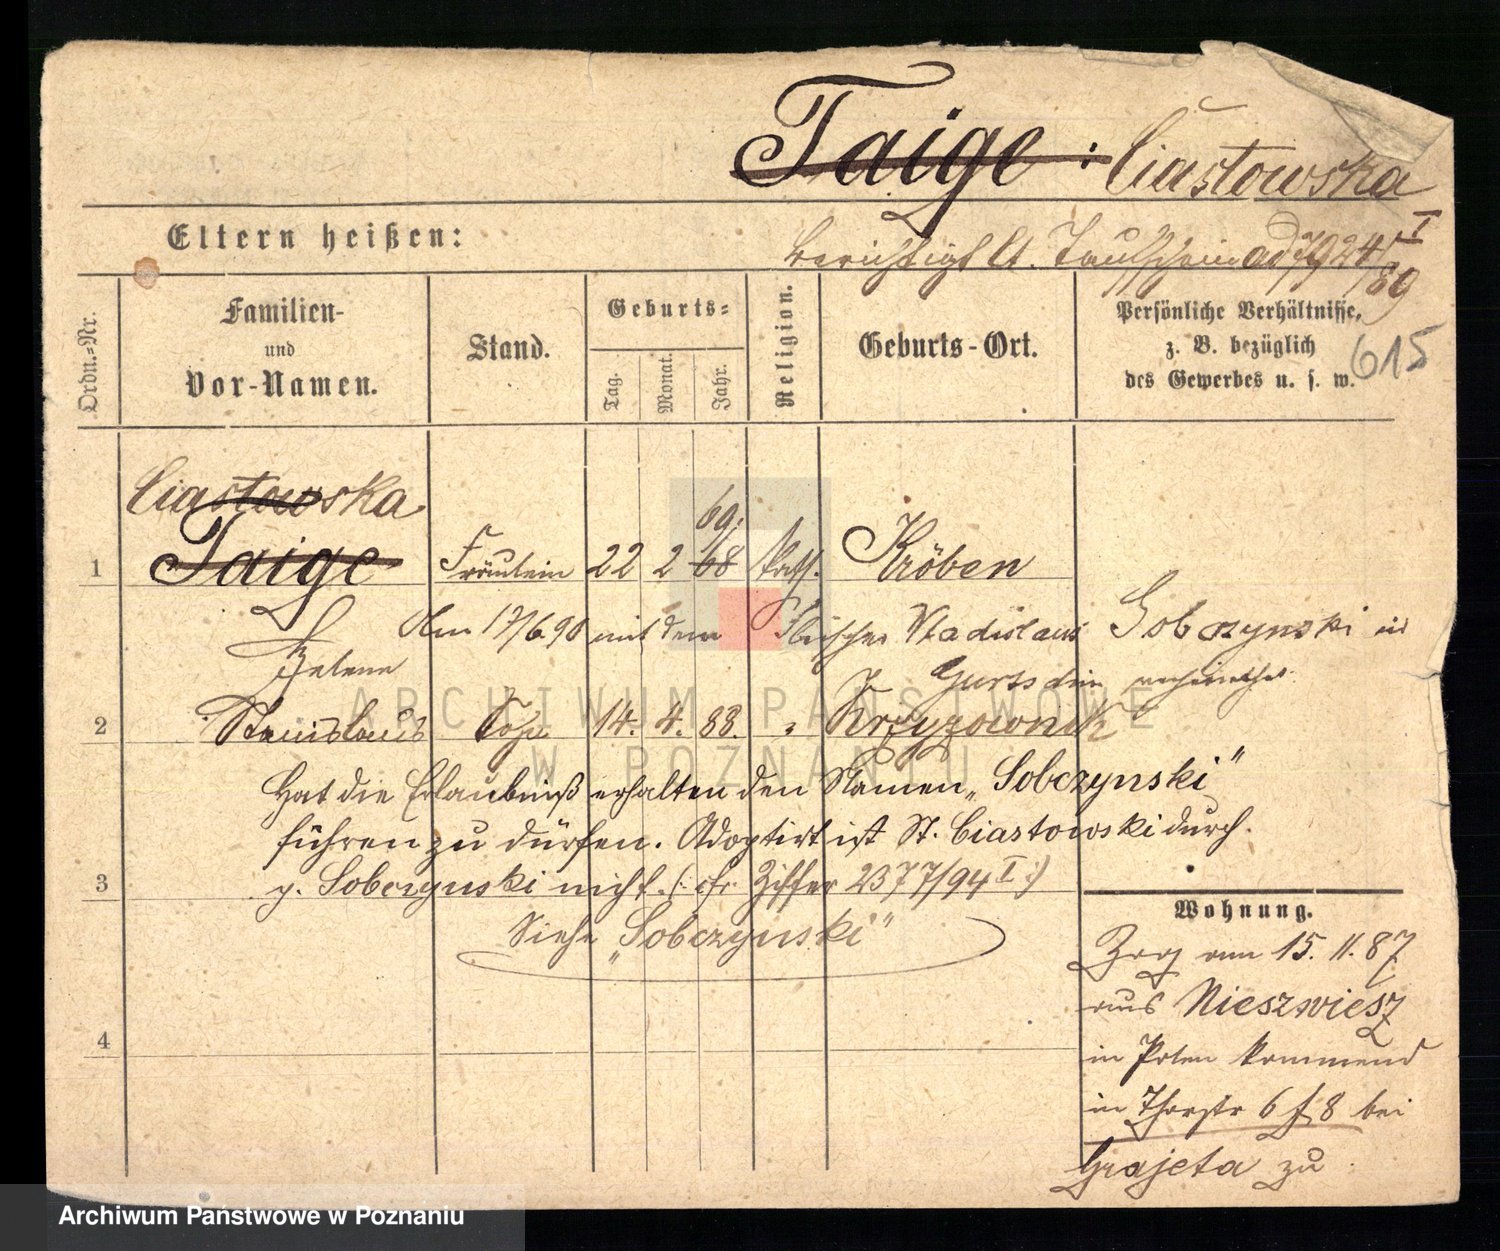 Taige : Ciastowska
Eltern heißen:
berichtigt lt. Taufschein ad 7924/89 I
Ordn.=Nr.
Familien-
und
Vor-Namen.
Stand.
Geburts=
Tag.
Monat.
Jahr.
Religion.
Geburts-Ort.
Persönliche Verhältnisse,
z. B. bezüglich
des Gewerbes u. s. w.
615
Ciastowska
69.
1 Taige Fräulein 22 2 68 kath. Kröben
Am 17/6 90 mit dem Fleischer Vladislaus Sobczynski in
Helene
verheirathet.
2 Stanislaus Sohn 14. 4. 88. " Krzyzownik
Hat die Erlaubniß erhalten den Namen „Sobczynski"
führen zu dürfen. Adoptirt ist St. Ciastowski durch
3 p. Sobczynski nicht. (: cfr. Ziffer 2377/94 I :)
Siehe „Sobczynski"
4
Wohnung.
Zzg am 15. 11. 87
aus Nieszwiesz
in Polen kommend
in Thorstr 6 f 8 bei
Grajeta zu
ARCHIWUM PAŃSTWOWE
W POZNANIU
Archiwum Państwowe w Poznaniu